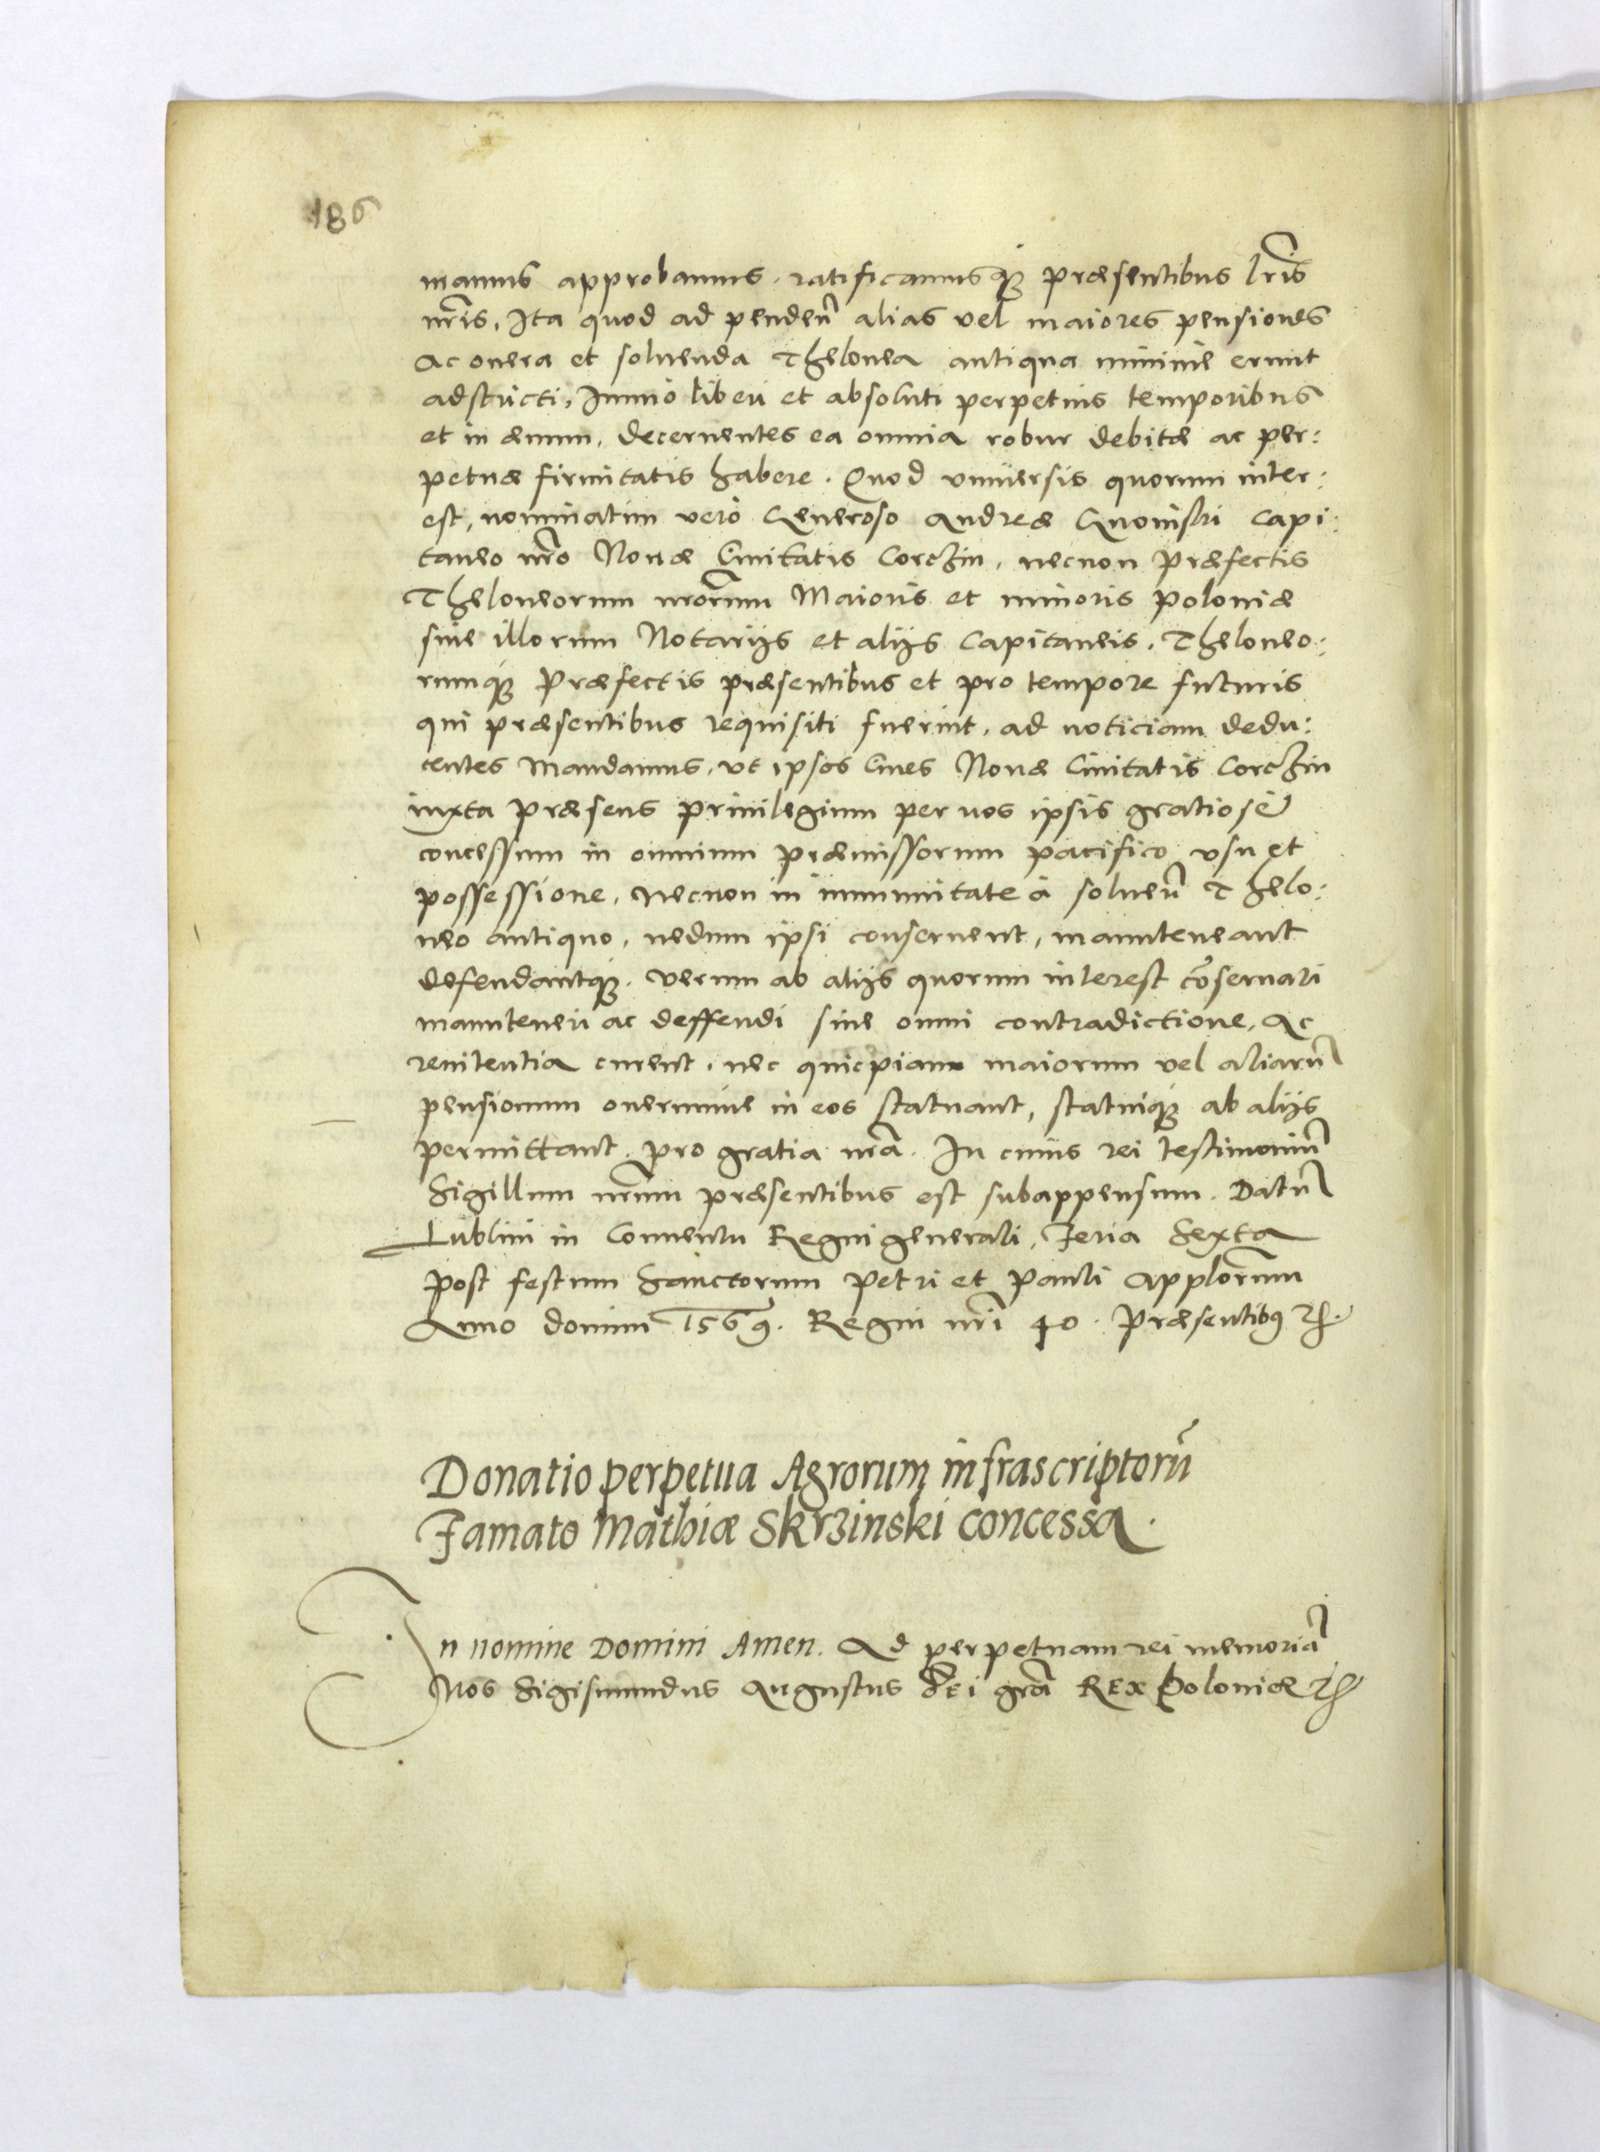 186
mamus approbamus, ratificamusq̃ præsentibus lr̃is
nr̃is, Ita quod ad penden̄ alias vel maiores pensiones
ac onera et soluenda Thelonea antiqua minime erunt
adstricti, Immo liberi et absoluti perpetuis temporibus
et in æuum, decernentes ea omnia robur debitæ ac per:
petuæ firmitatis habere. Quod vniuersis quorum inter:
est, nominatim verò Generoso Andreæ capi:
taneo nr̃o Nouæ Ciuitatis Corczin, necnon Præfectis
Theloneorum nr̃orum Maioris et minoris Poloniæ
siue illorum Notarijs et alijs Capitaneis, Theloneo:
rumq̃ Præfectis præsentibus et pro tempore futuris
qui præsentibus requisiti fuerint, ad noticiam dedu:
centes mandamus, vt ipsos Ciues Nouæ Ciuitatis Corczin
iuxta præsens priuilegium per nos ipsis gratiosè
concessum in omnium præmissorum pacifico vsu et
possessione, necnon in immunitate à soluen̄ Thelo:
neo antiquo, nedum ipsi conseruent, manuteneant
defendantq̃. verum ab alijs quorum interest cōseruari
manuteneri ac deffendi sine omni contradictione, ac
renitentia curent, nec quicpiam maiorum vel aliarū
pensionum onerumue in eos statuant, statuiq̃ ab alijs
permittant, pro gratia nr̃a. In cuius rei testimoniū
Sigillum nr̃um præsentibus est subappensum. Datū
Lublini in Conuentu Regni generali, Feria Sexta
post festum Sanctorum Petri et Pauli Applorum
Anno domini 1569. Regni nr̃i 40. Præsentibꝰ ꝛc.
Donatio perpetua Agrorum infrascriptorū
Famato Mathiæ Skrzinski concessa.
In nomine Domini Amen. Ad perpetuam rei memoriā
Nos Sigismundus Augustus dei grã Rex Poloniæ ꝛc